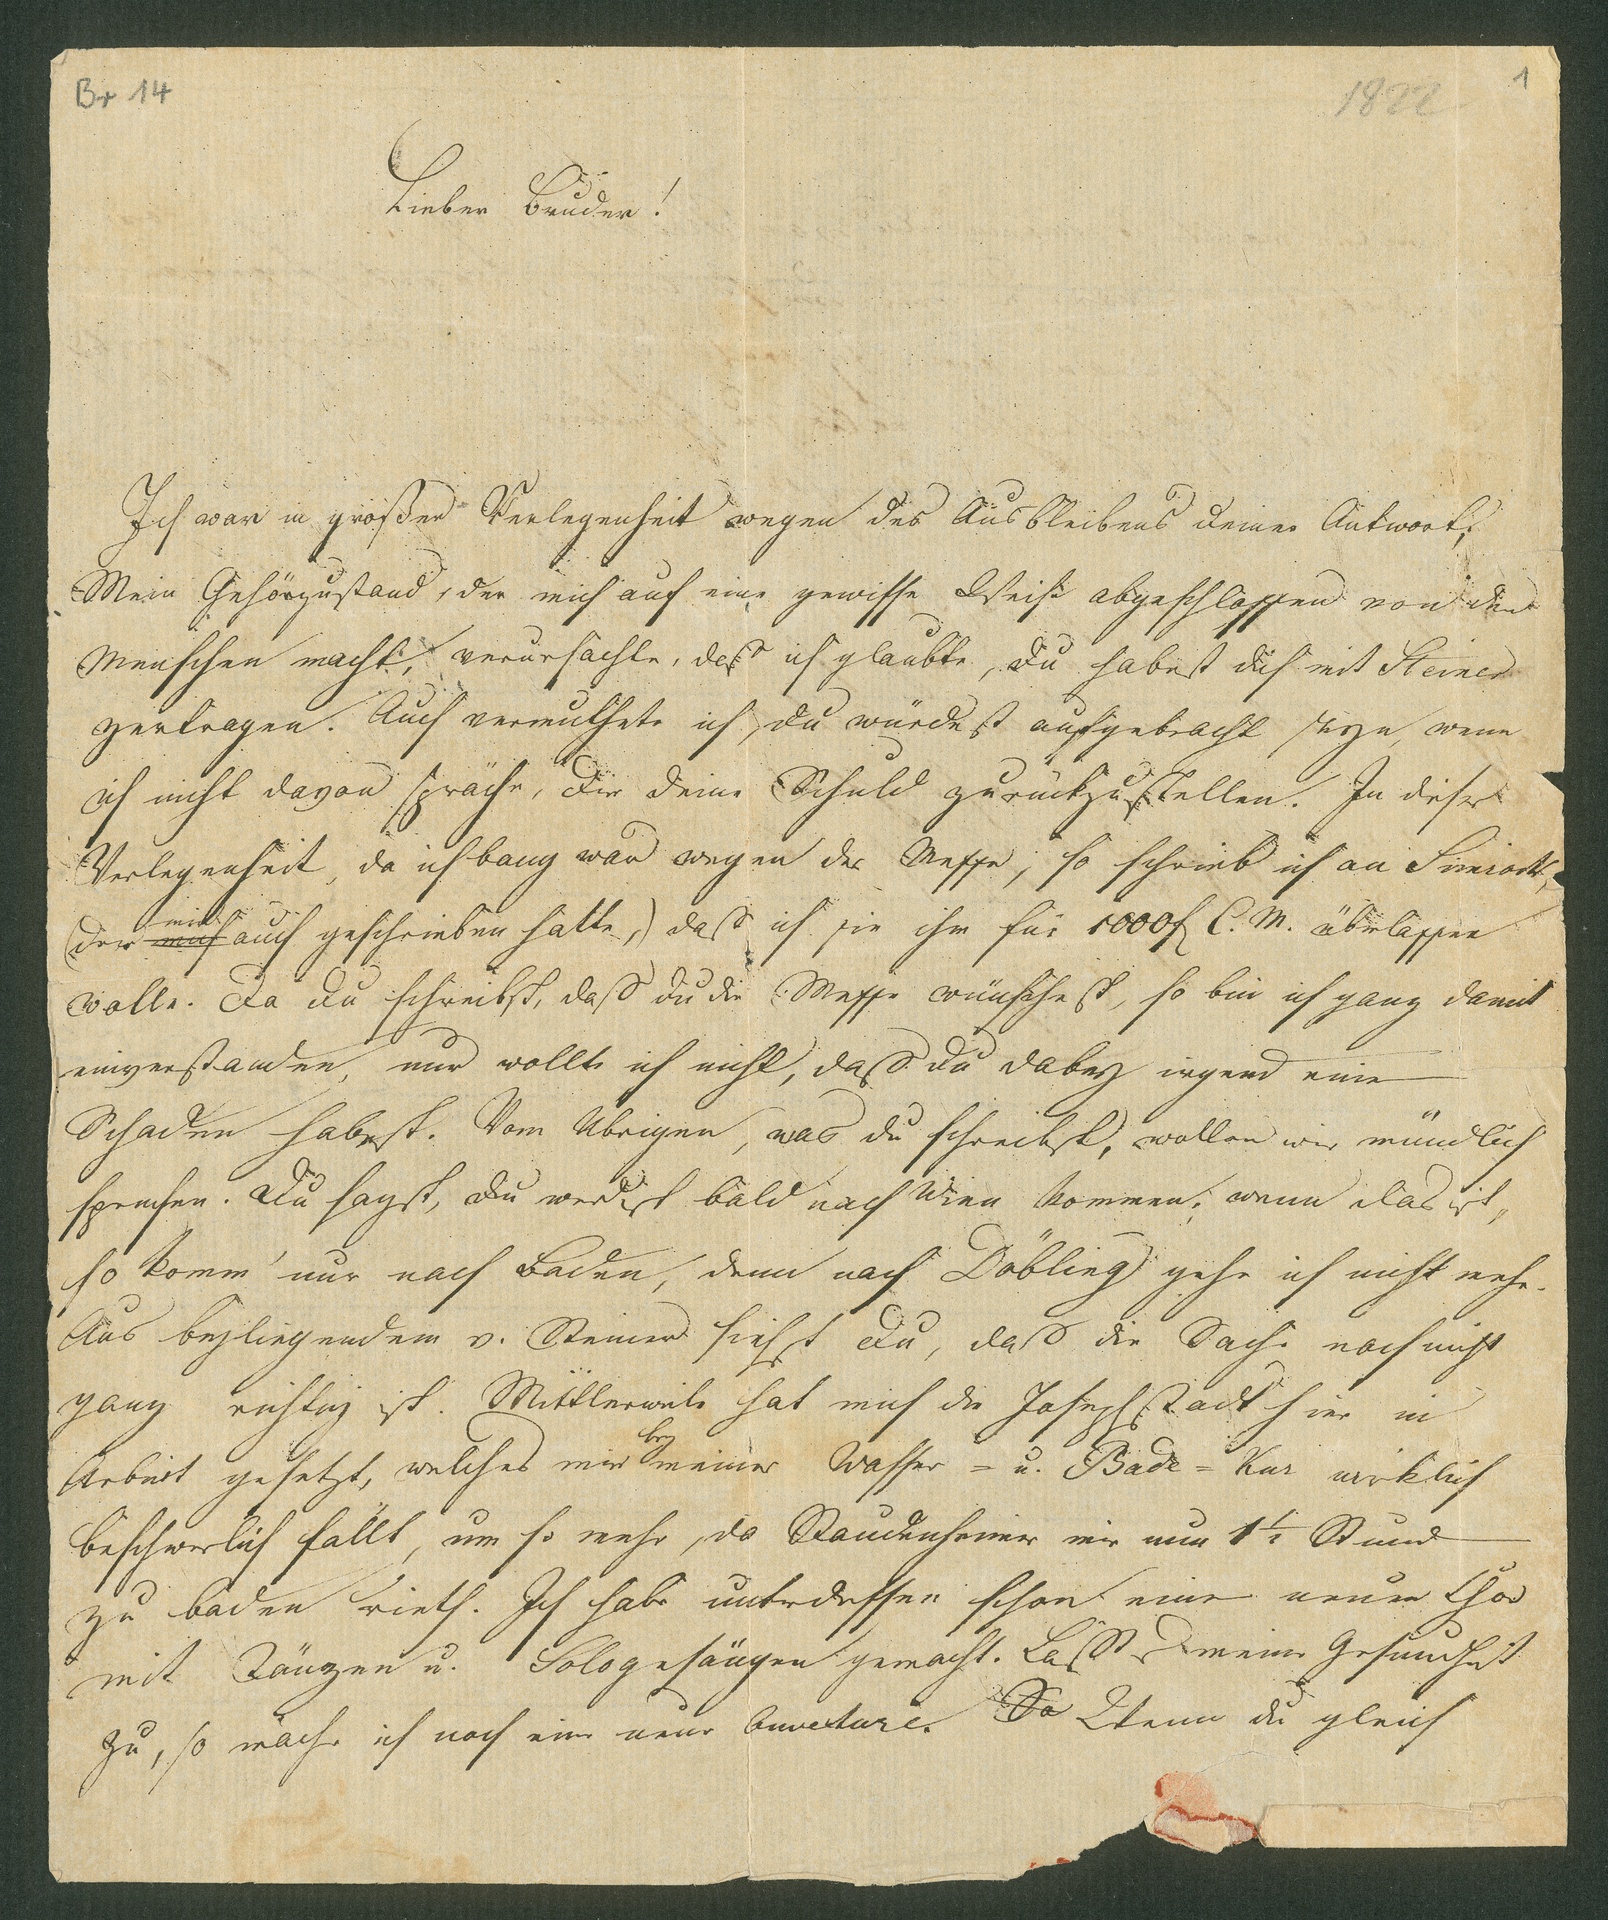 Br 14
1822
1
Lieber Bruder!
Ich war in großer Verlegenheit wegen des Ausbleibens deiner Antwort;
Mein Gehörzustand, der mich auf eine gewisse Weise abgeschlossen von den
Menschen macht, verursachte, daß ich glaubte, du habest dich mit Steiner
zertragen. Auch vermuthete ich, du würdest aufgebracht seyn, wenn
ich nicht davon spräche, dir deine Schuld zurückzustellen. In dieser
Verlegenheit, da ich bang war wegen der Messe, so schrieb ich an Simrock,
mir
(der mich auch geschrieben hatte,) daß ich sie ihm für 1000f C.M. überlassen
wolle. Da du schreibst, daß du die Messe wünschest, so bin ich ganz damit
einverstanden, nur wollte ich nicht, daß du dabey irgend eine
Schaden habest. Vom Übrigen, was du schreibst, wollen wir mündlich
sprechen. Du sagst, du werdest bald nach Wien kommen; wenn das ist,
so komm' nur nach Baden, denn nach Döbling gehe ich nicht mehr.
Aus beyliegendem v. Steiner siehst du, daß die Sache noch nicht
ganz richtig ist. Mittlerweile hat mich die Josephstadt hier in
bey
Arbeit gesetzt, welches mir meiner Wasser= u. Bade=Kur wirklich
beschwerlich fällt, um so mehr, da Staudenheimer mir nun 1½ Stund
zu baden rieth. Ich habe unterdessen schon einen neuen Chor
mit Tänzen u. Sologesängen gemacht. Läßt es meine Gesundheit
zu, so mache ich noch eine neue Ouverture. So Wenn du gleich